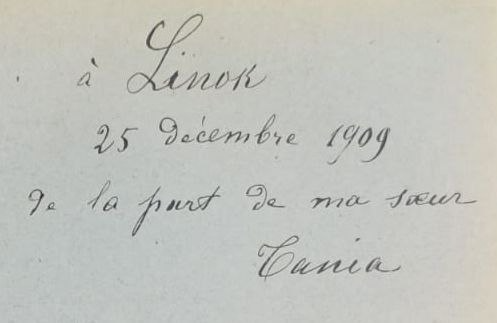 à Linok
25 décembre 1909
de la part de ma sœur
Tania